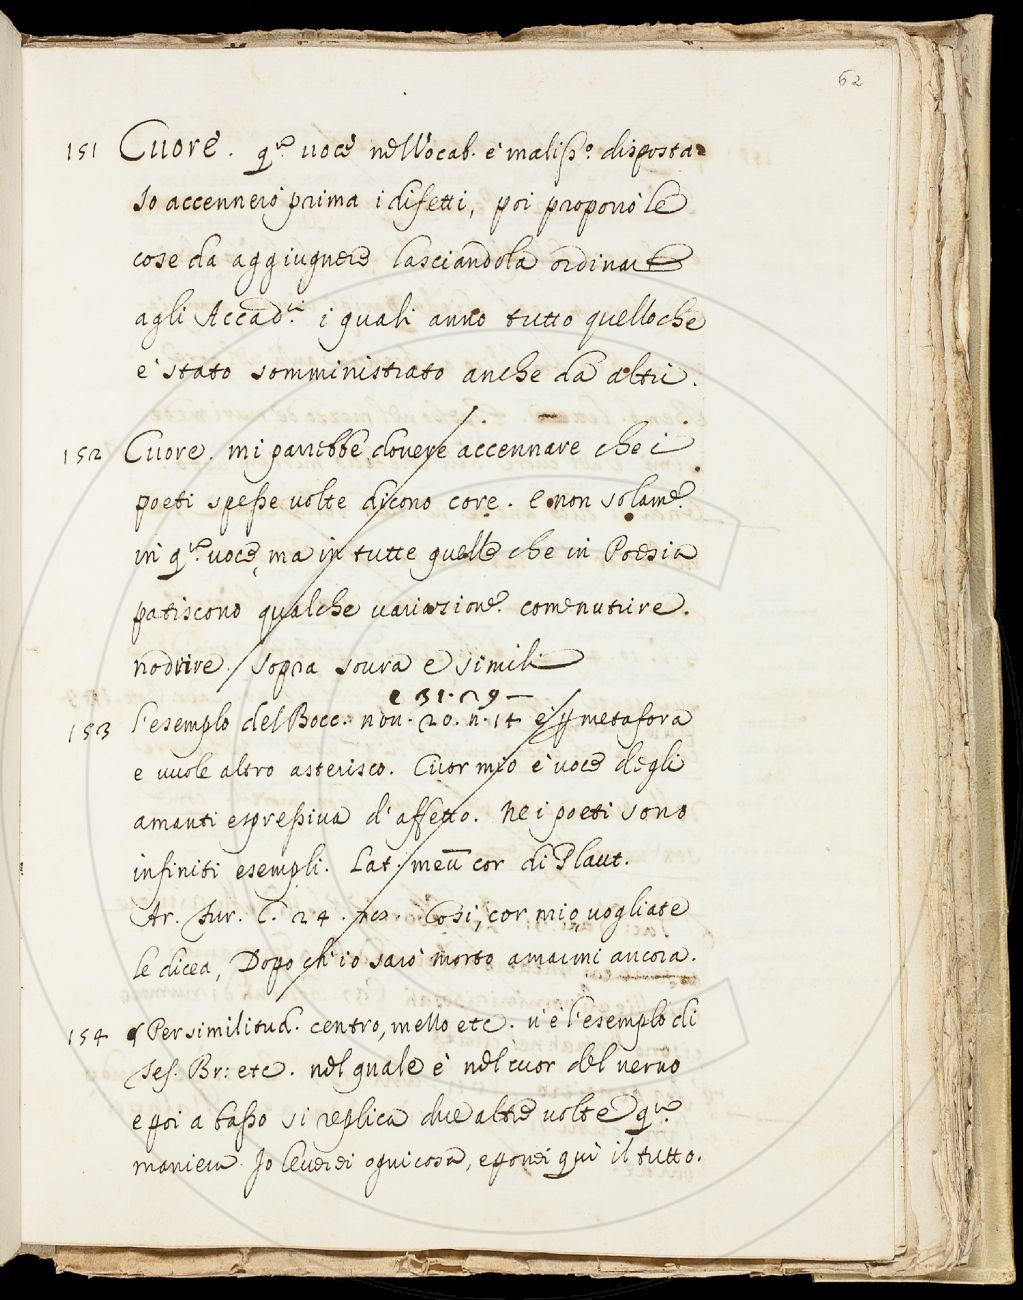 62
151 Cuore. q.ta voce nell Vocab. è maliss.o disposta
Io accennerò prima i difetti, poi proporrò le
cose da aggiugnere lasciandola ordinare
agli Accad.ci i quali anno tutto quello che
è stato somministrato anche da altri.
152 Cuore. mi parrebbe dovere accennare che i
poeti spesse volte dicono core. e non solam.e
in q.ta voce, ma in tutte quelle che in Poesia
patiscono qualche variazione. come nutrire.
nodrire. sopra soura e simili
e 31. 29
153 l'esemplo del Bocc. nov. 20. n. 14 è p metafora
e vuole altro asterisco. Cuor mio è voce degli
amanti espressiva d'affetto. Ne i poeti sono
infiniti esempli. Lat. meū cor di Plaut.
Ar. Fur. C. 24. Così, cor mio, vogliate
le dicea, Dopo ch'io sarò morto amarmi ancora.
154 Per similitud. centro, mezzo etc. v'è l'esemplo di
Tes. Br: etc. nel quale è nel cuor del verno
e poi a basso si replica due altre volte q.ta
maniera. Io leverei ogni cosa, e porrei quì il tutto.